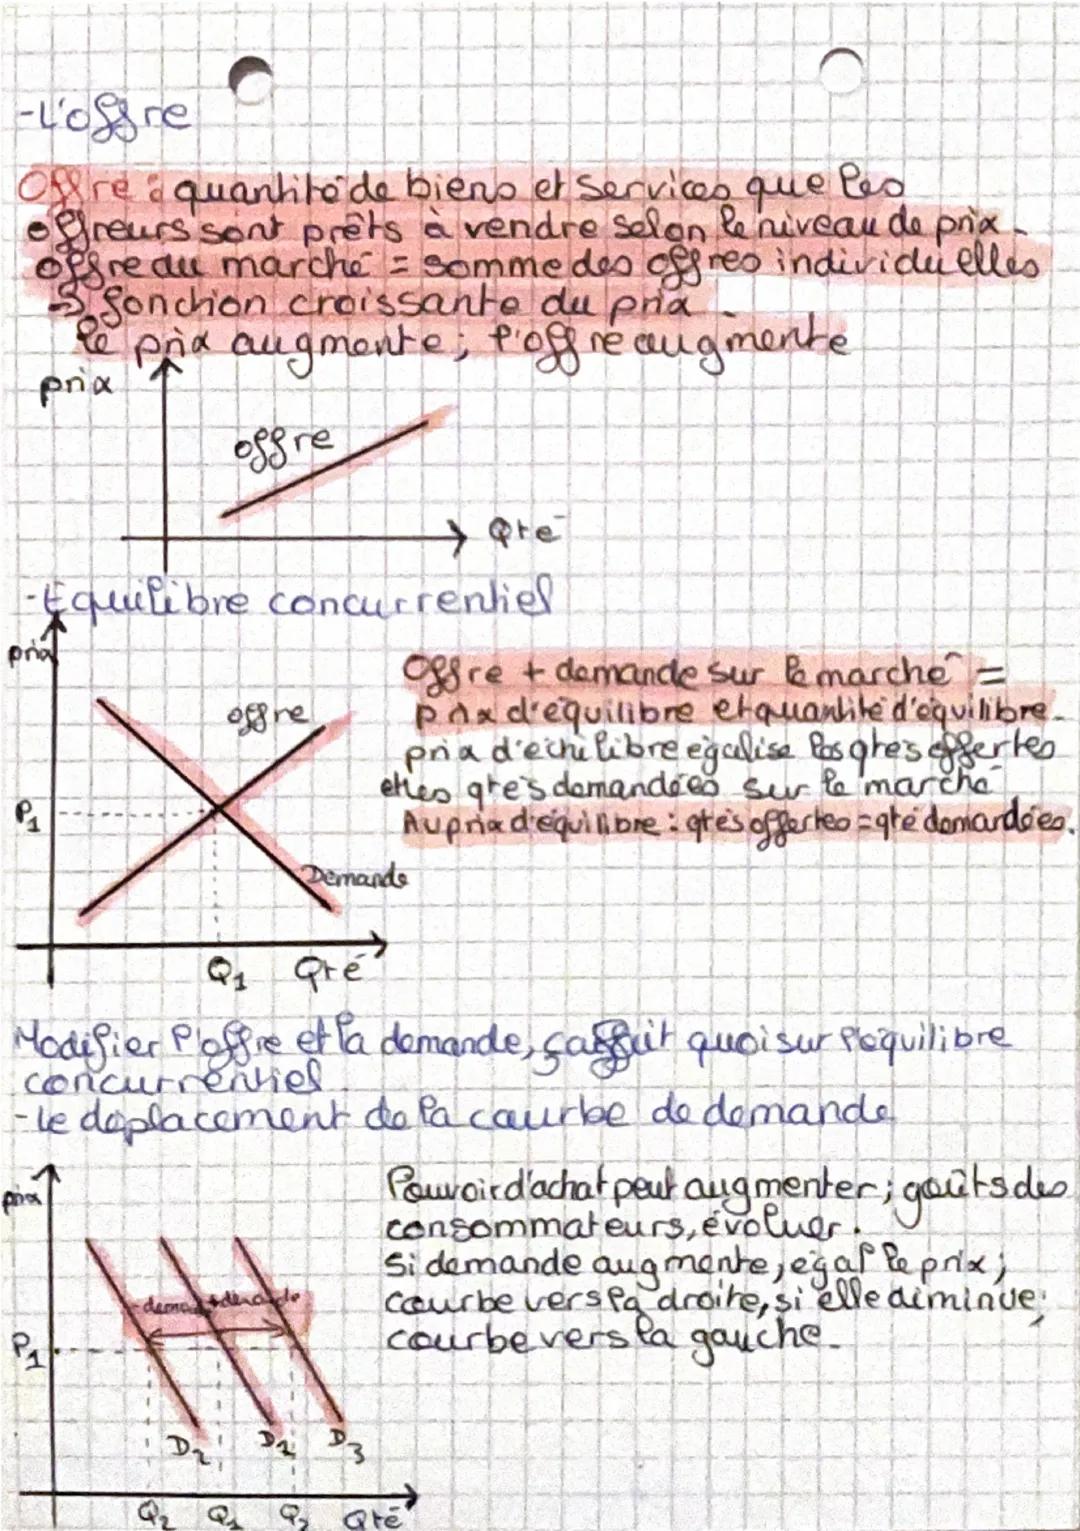 -L'offre
Offre : quantité de biens et services que les
offreurs sont prêts à vendre selon le niveau de prix.
offre du marché = somme des offres individuelles
→ fonction croissante du prix.
le prix augmente; l'offre augmente
prix
offre
Qté
-Equilibre concurrentiel
prix
offre
P1
Demande
Q1 Qté
Offre + demande sur le marché =
prix d'équilibre et quantité d'équilibre.
prix d'échilibre égalise les qtés offertes
et les qtés demandées sur le marché
Au prix d'équilibre : qtés offertes = qté demandées.
Modifier l'offre et la demande, ça fait quoi sur l'équilibre
concurrentiel.
-Le déplacement de la courbe de demande
prix
- demande + demande
P1
D2 D1 D3
Q2 Q1 Q3 Qté
Pouvoir d'achat peut augmenter; goûts des
consommateurs, évoluer.
Si demande augmente, égal le prix;
courbe vers la droite, si elle diminue;
courbe vers la gauche.